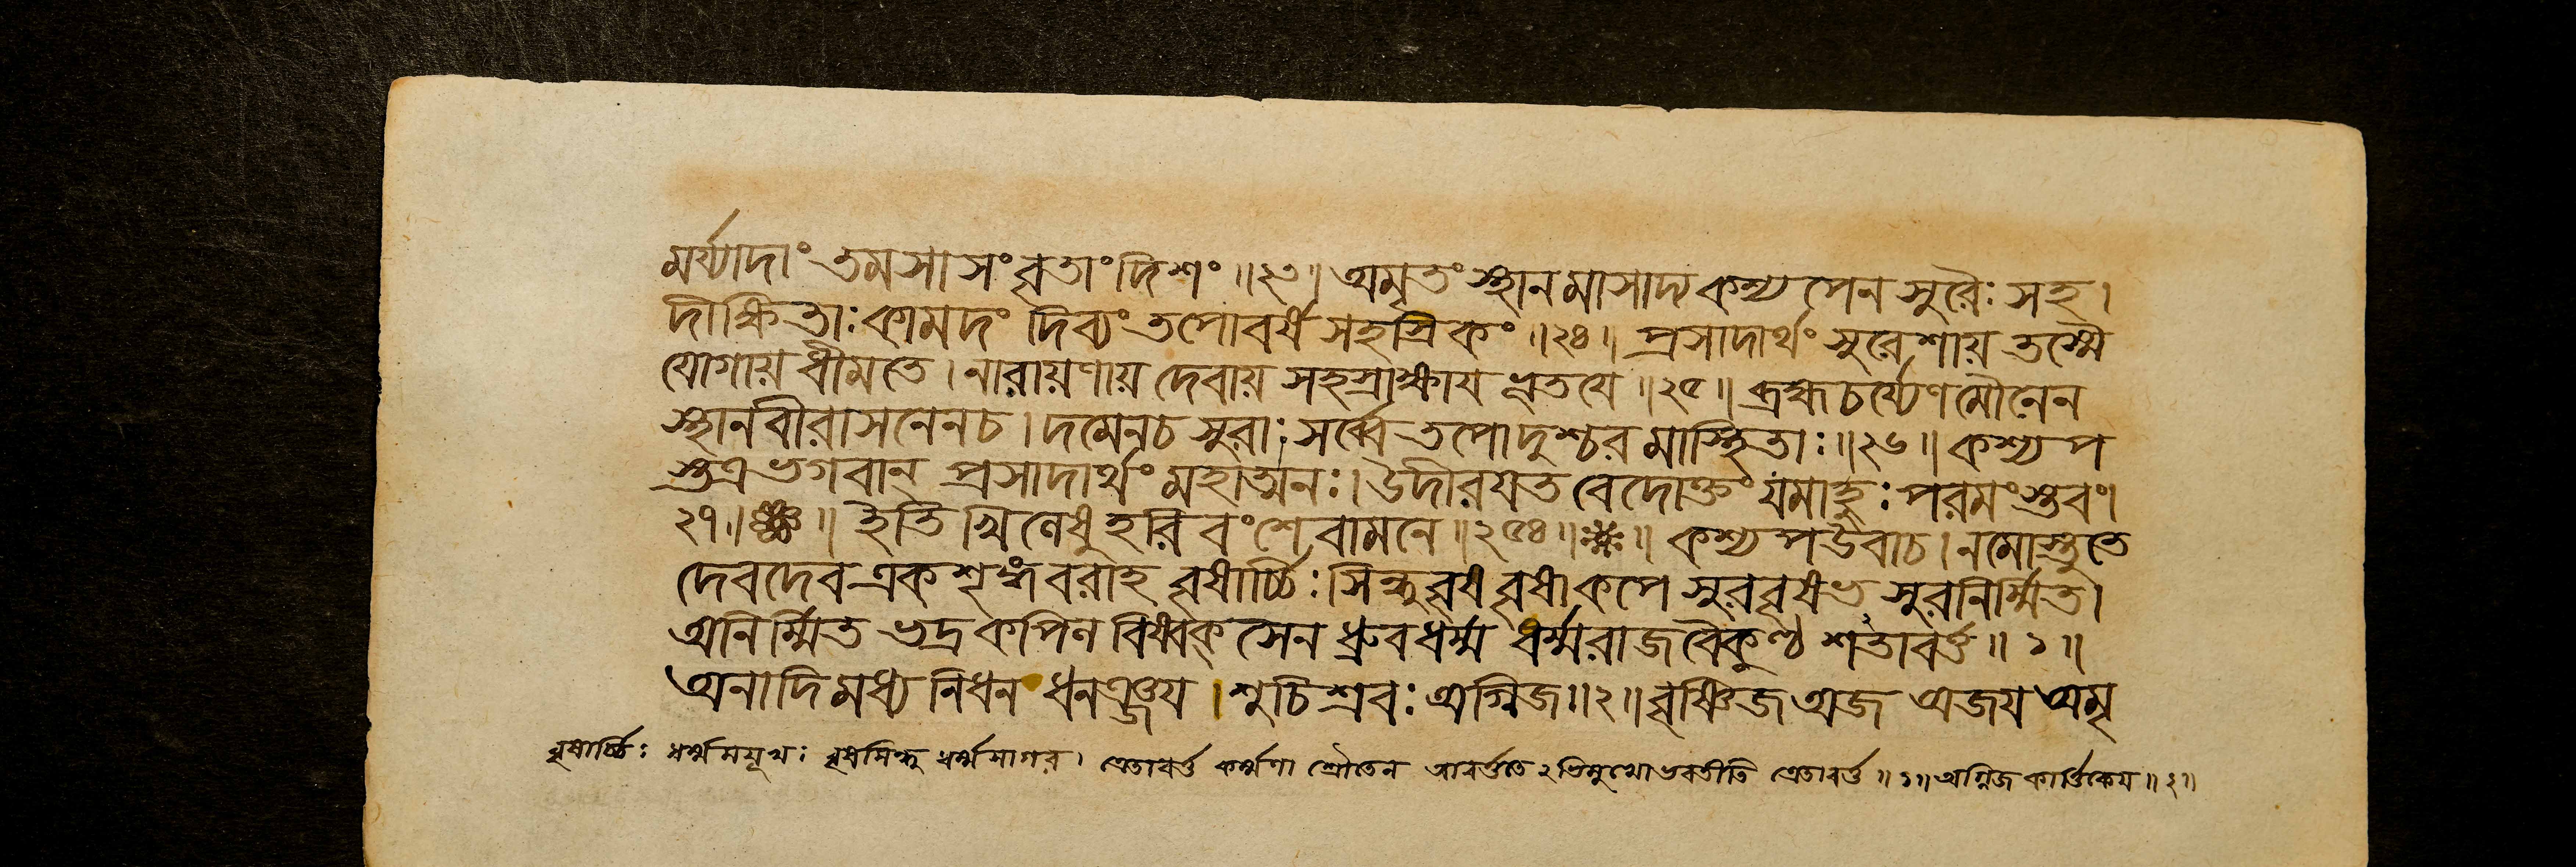 মর্য্যাদাং তমসা সংবৃতাং দিশং ॥২৩॥ অমৃতং স্থানমাসাদ্য কশ্যপেন সুরৈঃ সহ।
দীক্ষিতাঃ কামদং দিব্যং তপোবর্ষসহস্রিকং ॥২৪॥ প্রসাদার্থং সুরেশায় তস্মৈ
যোগায় ধীমতে। নারায়ণায় দেবায় সহস্রাক্ষায ধৃতযে ॥২৫॥ ব্রহ্মচর্য্যেণ মৌনেন
স্থানবীরাসনেনচ। দমেনচ সুরাঃ সর্ব্বে তপোদুশ্চরমাস্থিতাঃ ॥২৬॥ কশ্যপ
স্তত্র ভগবান্ প্রসাদার্থং মহাত্মনঃ। উদীরযত বেদোক্তং যমাহুঃ পরমং স্তবং।
২৭॥ ॥ ইতি খিলেষু হরিবংশে বামনে ॥২৫৪॥ ॥ কশ্যপউবাচ। নমোস্তুতে
দেবদেব একশৃঙ্গ বরাহ বৃষার্চ্চিঃ সিন্ধুবৃষ বৃষাকপে সুরবৃষভ সুরনির্ম্মিত।
অনির্ম্মিত ভদ্রকপিন বিষ্বক্সেন ধ্রুবধর্ম্ম ধর্ম্মরাজ বৈকুণ্ঠ শতাবর্ত্ত ॥ ১ ॥
অনাদিমধ্যনিধন ধনঞ্জয। শুচিশ্রবঃ অগ্নিজ॥২॥ বৃষ্ণিজ অজ অজয অমৃ
বৃষার্চ্চিঃ ধর্ম্মময়ূখঃ বৃষসিন্ধু ধর্ম্মসাগর। ত্রেতাবর্ত্ত কর্ম্মণা শ্রৌতেন আবর্ত্ততে২ভিমুখোভবতীতি ত্রেতাবর্ত্ত ॥১॥ অগ্নিজ কার্ত্তিকেয ॥২॥